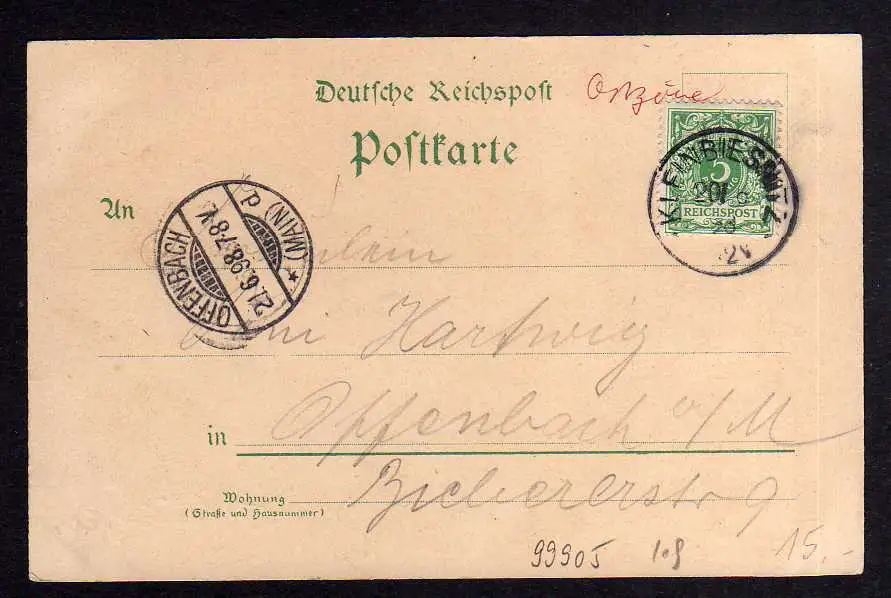 Deutsche Reichspost
Postkarte
5
REICHSPOST
KLEINBIESNITZ
20
An
OFFENBACH (MAIN)
21.6.98.7-8V.
Hartwig
in Offenbach a/M
Wohnung
(Straße und Hausnummer)
Biebererstr 9
99905
15,-